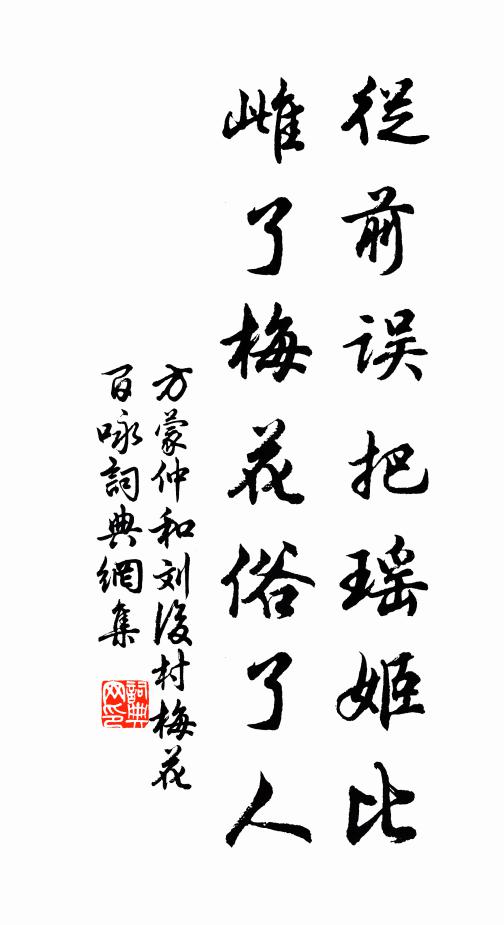 從前误把瑶姬比
雌了梅花俗了人
方蒙仲和刘後村梅花
百咏詞典網集
詞典
网印